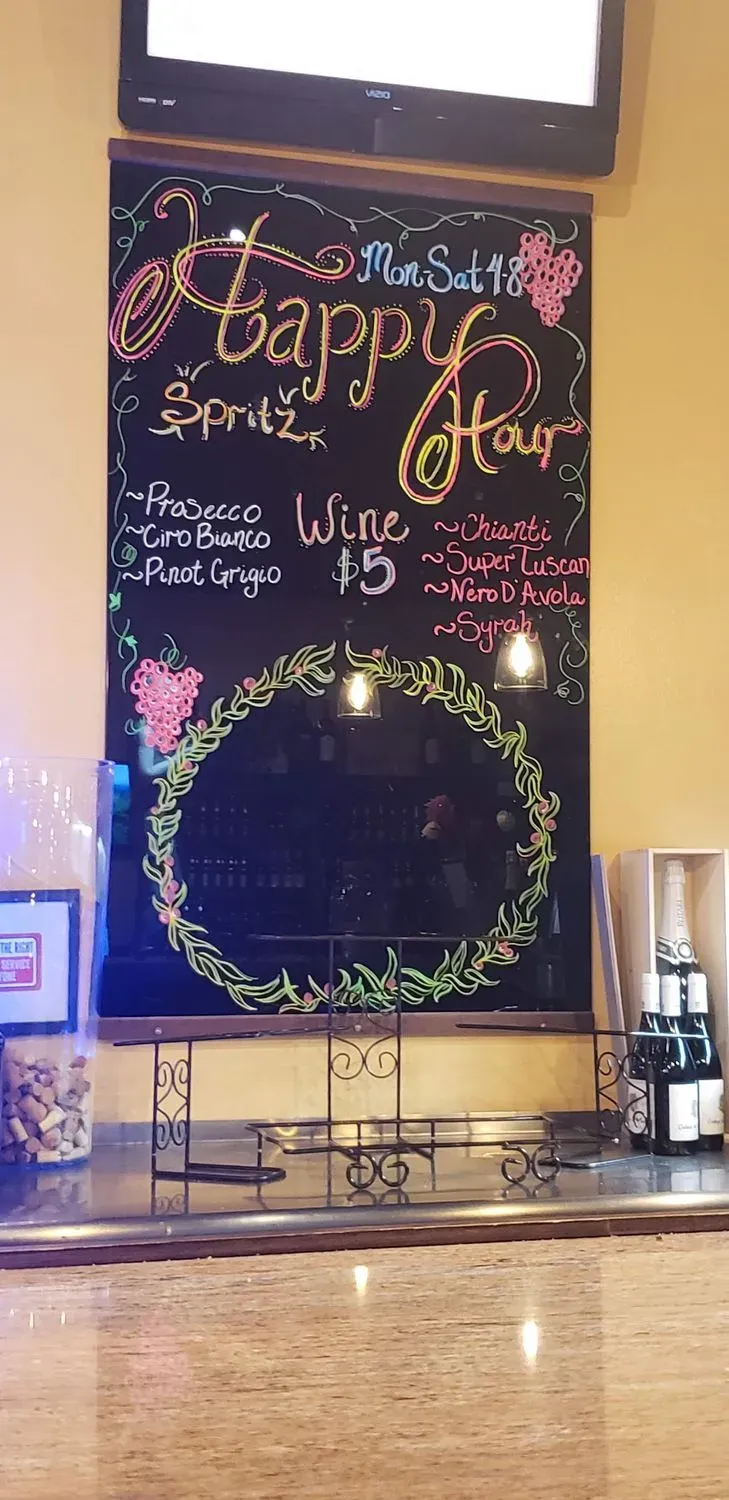 HDMI DIV
VIZIO
Mon-Sat 4-8
Happy
Hour
Spritz
~Prosecco
~Ciro Bianco
~Pinot Grigio
Wine
$5
~Chianti
~Super Tuscan
~Nero D'Avola
~Syrah
THE RIGHT
SERVICE